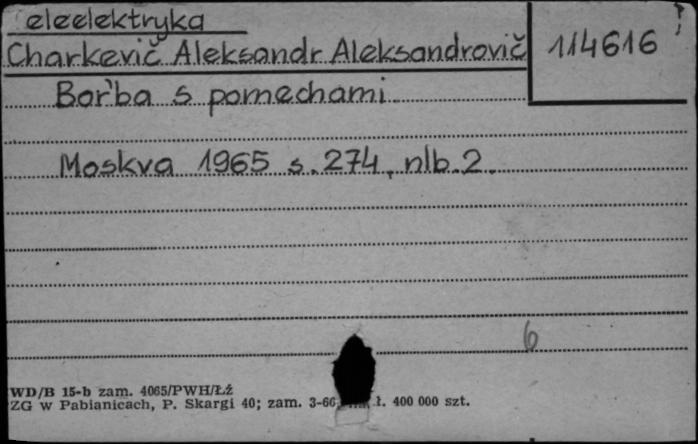 eleelektryka
Charkevič Aleksandr Aleksandrovič
114616
Bor'ba s pomechami
Moskva 1965 s. 274, nlb. 2.
6
WD/B 15-b zam. 4065/PWH/Łź
ZG w Pabianicach, P. Skargi 40; zam. 3-66 ł. 400 000 szt.